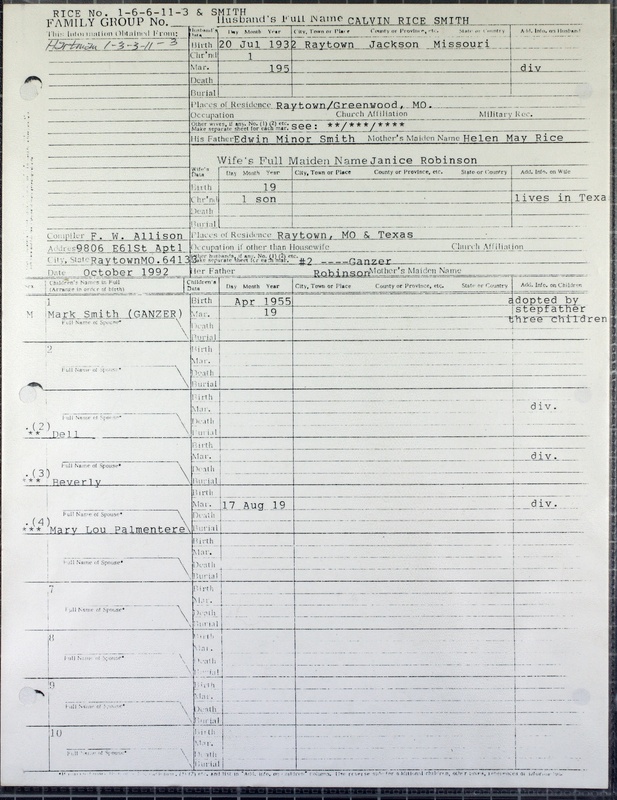 RICE No. 1-6-6-11-3 & SMITH
FAMILY GROUP No.
Husband's Full Name CALVIN RICE SMITH
This Information Obtained From:
Husband's Data Day Month Year City, Town or Place County or Province, etc. State or Country Add. Info. on Husband
1-3-3-11-3
Birth 20 Jul 1932 Raytown Jackson Missouri
Chr'nd 1
Mar. 195 div
Death
Burial
Places of Residence Raytown/Greenwood, MO.
Occupation Church Affiliation Military Rec.
Other wives, if any. No. (1) (2) etc. Make separate sheet for each mar. see: **/***/****
His Father Edwin Minor Smith Mother's Maiden Name Helen May Rice
Wife's Full Maiden Name Janice Robinson
Wife's Data Day Month Year City, Town or Place County or Province, etc. State or Country Add. Info. on Wife
Birth 19
Chr'nd 1 son lives in Texa
Death
Burial
Compiler F. W. Allison
Places of Residence Raytown, MO & Texas
Address 9806 E61St Apt1
Occupation if other than Housewife Church Affiliation
City, State Raytown MO. 64133
Other husbands, if any. No. (1) (2) etc. Make separate sheet for each mar. #2 ----Ganzer
Date October 1992
Her Father Robinson Mother's Maiden Name
Sex Children's Names in Full (Arrange in order of birth) Children's Data Day Month Year City, Town or Place County or Province, etc. State or Country Add. Info. on Children
1 Birth Apr 1955 adopted by
M Mark Smith (GANZER) Mar. 19 stepfather
Full Name of Spouse* Death three children
Burial
2 Birth
Mar.
Full Name of Spouse* Death
Burial
Birth
Mar. div.
Full Name of Spouse* Death
(2)
** Dell Burial
Birth
Mar. div.
Full Name of Spouse* Death
(3)
*** Beverly Burial
Birth
Mar. 17 Aug 19 div.
Full Name of Spouse* Death
(4)
*** Mary Lou Palmentere Burial
Birth
Mar.
Full Name of Spouse* Death
Burial
7 Birth
Mar.
Full Name of Spouse* Death
Burial
8 Birth
Mar.
Full Name of Spouse* Death
Burial
9 Birth
Mar.
Full Name of Spouse* Death
Burial
10 Birth
Mar.
Full Name of Spouse* Death
Burial